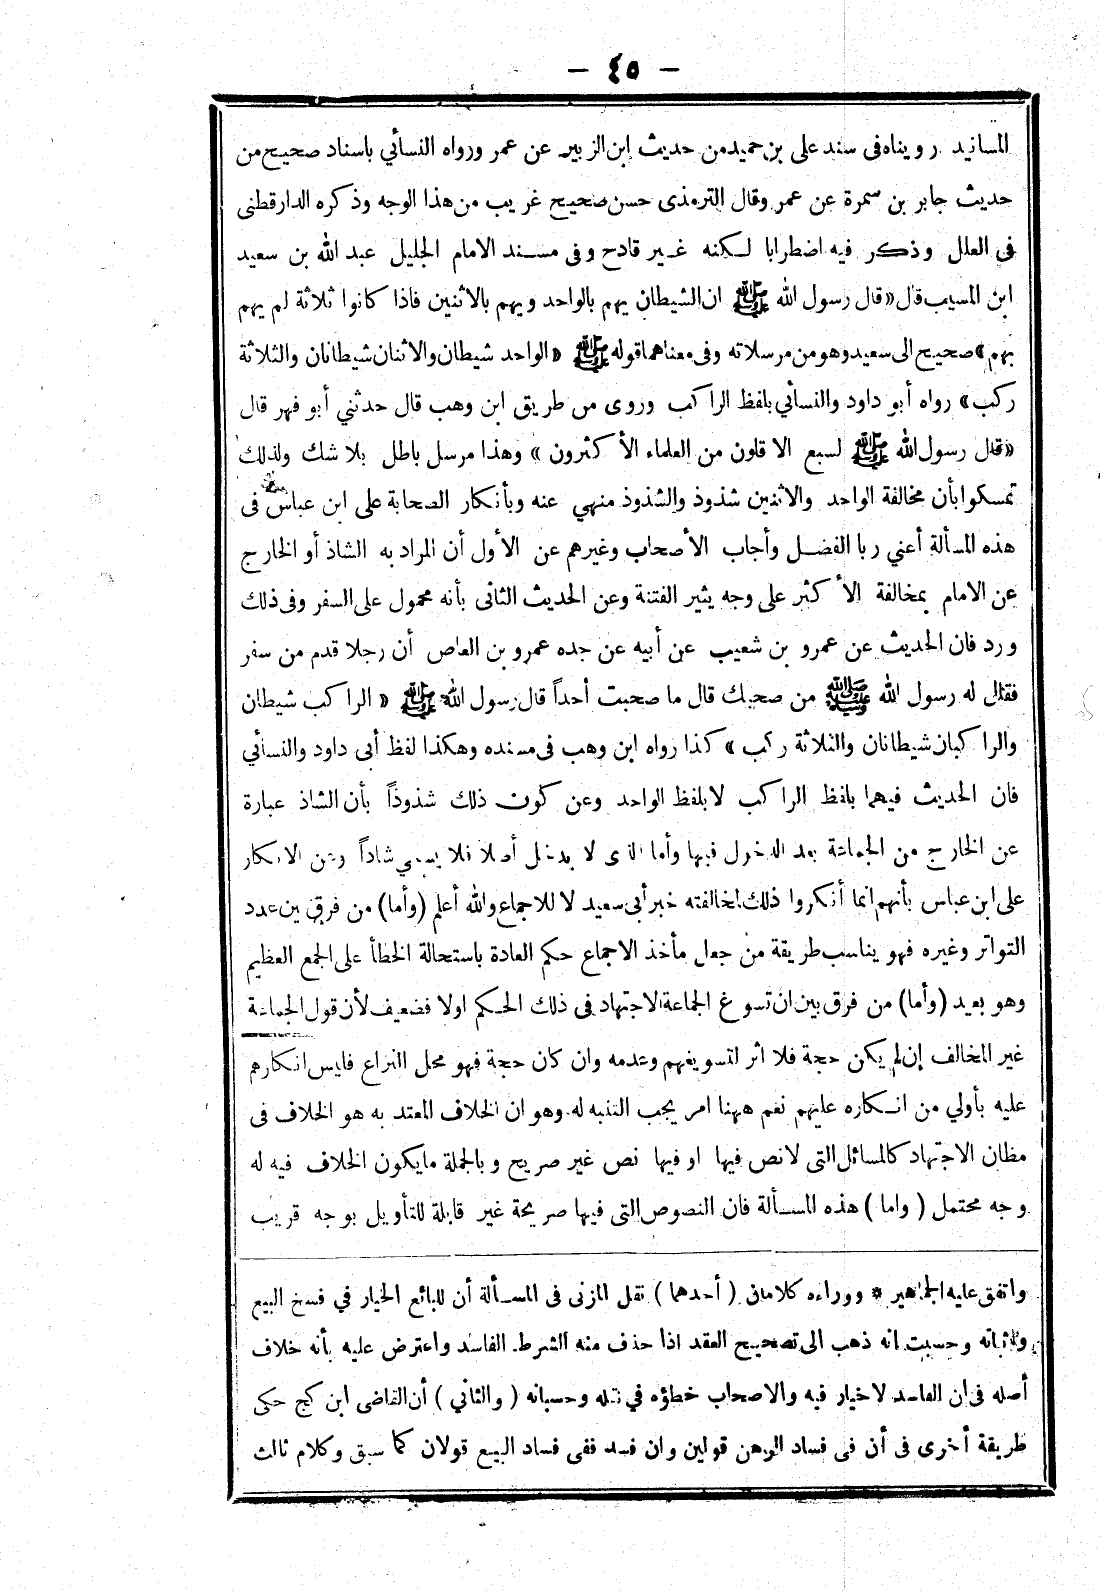 – ٤٥ –
المسانيد رويناه فى سند على بن حميد من حديث ابن الزبير عن عمر ورواه النسائي باسناد صحيح من
حديث جابر بن سمرة عن عمر وقال الترمذى حسن صحيح غريب من هذا الوجه وذكره الدارقطنى
فى العلل وذكر فيه اضطرابا لكنه غير قادح وفى مسند الامام الجليل عبد الله بن سعيد
ابن المسيب قال «قال رسول الله ﷺ ان الشيطان يهم بالواحد ويهم بالاثنين فاذا كانوا ثلاثة لم يهم
بهم» صحيح الى سعيد وهو من مرسلاته وفى معناهما قوله ﷺ «الواحد شيطان والاثنان شيطانان والثلاثة
ركب» رواه أبو داود والنسائي بلفظ الراكب وروى من طريق ابن وهب قال حدثني أبو فهر قال
«قال رسول الله ﷺ لسبع الاقلون من العلماء الأكثرون» وهذا مرسل باطل بلا شك ولذلك
تمسكوا بأن مخالفة الواحد والاثنين شذوذ والشذوذ منهي عنه وبأنكار الصحابة على ابن عباس فى
هذه المسألة أعني ربا الفضل وأجاب الأصحاب وغيرهم عن الأول أن المراد به الشاذ أو الخارج
عن الامام بمخالفة الأكثر على وجه يثير الفتنة وعن الحديث الثانى بأنه محمول على السفر وفى ذلك
ورد فان الحديث عن عمرو بن شعيب عن أبيه عن جده عمرو بن العاص أن رجلا قدم من سفر
فقال له رسول الله ﷺ من صحبك قال ما صحبت أحداً قال رسول الله ﷺ «الراكب شيطان
والراكبان شيطانان والثلاثة ركب» كذا رواه ابن وهب فى مسنده وهكذا لفظ أبى داود والنسائي
فان الحديث فيهما بلفظ الراكب لا بلفظ الواحد وعن كون ذلك شذوذاً بأن الشاذ عبارة
عن الخارج من الجماعة بعد الدخول فيها وأما الذى لا يدخل أصلا فلا يسمى شاذاً وعن الانكار
على ابن عباس بأنهم انما أنكروا ذلك لمخالفته خبر أبى سعيد لا للاجماع والله أعلم (وأما) من فرق بين عدد
التواتر وغيره فهو يناسب طريقة من جعل مأخذ الاجماع حكم العادة باستحالة الخطأ على الجمع العظيم
وهو بعيد (وأما) من فرق بين ان تسوغ الجماعة الاجتهاد فى ذلك الحكم اولا فضعيف لأن قول الجماعة
غير المخالف إن لم يكن حجة فلا اثر لتسويغهم وعدمه وان كان حجة فهو محل النزاع فليس انكارهم
عليه بأولي من انكاره عليهم نعم ههنا امر يجب التنبه له وهو ان الخلاف المعتد به هو الخلاف فى
مظان الاجتهاد كالمسائل التى لا نص فيها او فيها نص غير صريح وبالجملة ما يكون الخلاف فيه له
وجه محتمل (واما) هذه المسألة فان النصوص التى فيها صريحة غير قابلة للتأويل بوجه قريب
واتفق عليه الجماهير * ووراءه كلامان (أحدهما) نقل المزنى فى المسألة أن للبائع الخيار في فسخ البيع
واثباته وحسبت انه ذهب الى تصحيح العقد اذا حذف منه الشرط الفاسد واعترض عليه بأنه خلاف
أصله فى ان الفاسد لا خيار فيه والاصحاب خطؤه في نقله وحسبانه (والثاني) أن القاضى ابن كج حكى
طريقة أخرى فى أن فى فساد الرهن قولين وان فسد ففى فساد البيع قولان كما سبق وكلام ثالث